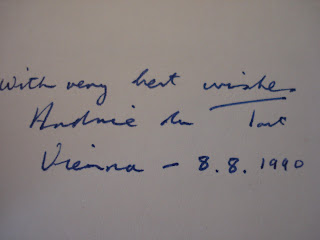 With very best wishes
Andrée du Toit
Vienna - 8.8.1990